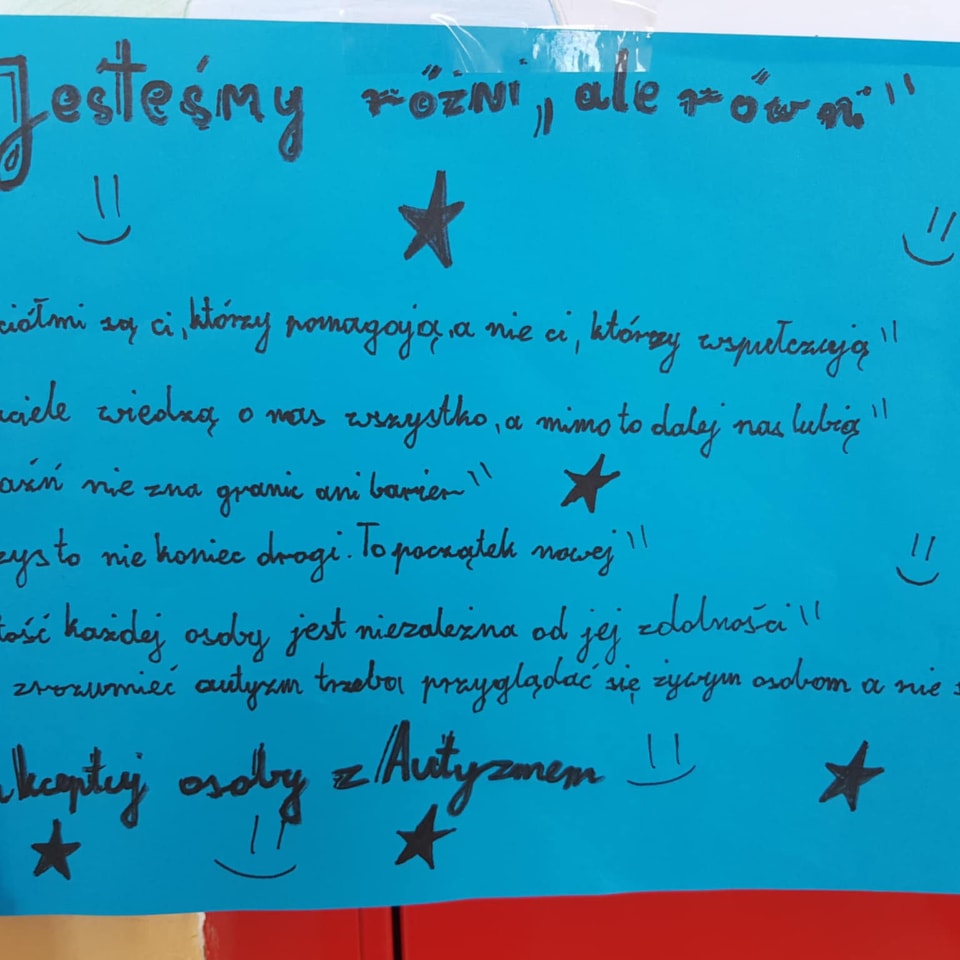 Jesteśmy różni, ale równi"
ciółmi są ci, którzy pomagają, a nie ci, którzy wspułczują"
ciele wiedzą o nas wszystko, a mimo to dalej nas lubią"
aźń nie zna granic ani barier"
zys to nie koniec drogi. To początek nowej"
tość każdej osoby jest niezależna od jej zdolności"
zrozumieć autyzm trzeba przyglądać się żywym osobom a nie s
akceptuj osoby z Autyzmem